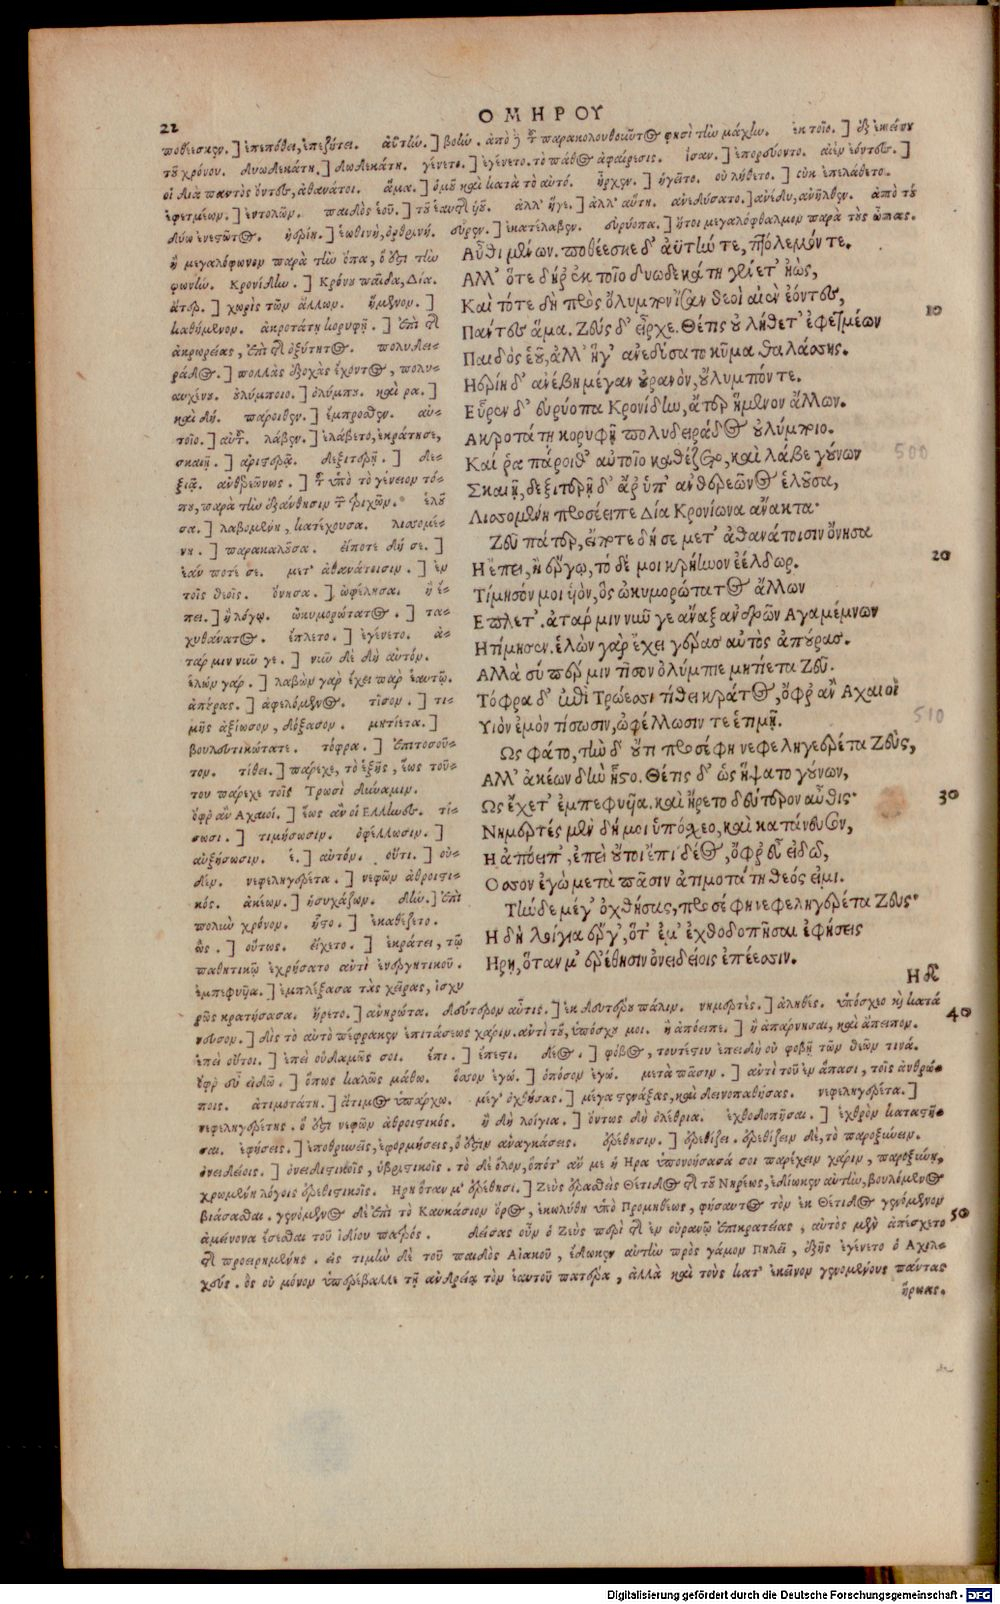 22
ΟΜΗΡΟΥ
ποθέεσκεν.] ἐπεπόθει, ἐπεζήτει. ἀϋτήν.] βοήν. ἀπὸ τοῦ παρακολουθοῦντος φησὶ τὴν μάχην. ἐκ τοῖο.] ἐξ ἐκείνου
τοῦ χρόνου. δυωδεκάτη.] δωδεκάτη. γένετο.] ἐγένετο. τὸ πάθος ἀφαίρεσις. ἴσαν.] ἐπορεύοντο. αἰὲν ἐόντες.]
οἱ διὰ παντὸς ὄντες, ἀθάνατοι. ἅμα.] ὁμοῦ καὶ κατὰ τὸ αὐτό. ἦρχεν.] ἡγεῖτο. οὐ λήθετο.] οὐκ ἐπελάθετο.
ἐφετμέων.] ἐντολῶν. παιδὸς ἑοῦ.] τοῦ ἑαυτῆς υἱοῦ. ἀλλ' ἥγε.] ἀλλ' αὕτη. ἀνεδύσατο.] ἀνέδυ, ἀνῆλθεν. ἀπὸ τοῦ
δύω ἐνεστῶτος. ἠερίη.] ἑωθινὴ, ὀρθρινή. εὗρεν.] ἐκατέλαβεν. εὐρύοπα.] ἤτοι μεγαλόφθαλμον παρὰ τοὺς ὦπας.
ἢ μεγαλόφωνον παρὰ τὴν ὄπα, ὅ ἐστι τὴν
φωνήν. Κρονίδην.] Κρόνου παῖδα, Δία.
ἄτερ.] χωρὶς τῶν ἄλλων. ἥμενον.]
καθήμενον. ἀκροτάτη κορυφῇ.] ἐπὶ τῆς
ἀκρωρείας, ἐπὶ τῆς ὀξύτητος. πολυδει-
ράδος.] πολλὰς ἐξοχὰς ἔχοντος, πολυ-
αυχένου. οὐλύμποιο.] ὀλύμπου. καὶ ρα.]
καὶ δή. πάροιθεν.] ἔμπροσθεν. αὐ-
τοῖο.] αὐτοῦ. λάβεν.] ἐλάβετο, ἐκράτησε,
σκαιῇ.] ἀριστερᾷ. δεξιτερῇ.] δε-
ξιᾷ. ἀνθερεῶνος.] τοῦ ὑπὸ τὸ γένειον τό-
που, παρὰ τὴν ἐξάνθησιν τῶν τριχῶν. ἑλοῦ-
σα.] λαβομένη, κατέχουσα. λισσομέ-
νη.] παρακαλοῦσα. εἴποτε δή σε.]
ἐάν ποτέ σε. μετ' ἀθανάτοισιν.] ἐν
τοῖς θεοῖς. ὄνησα.] ὠφέλησα. ἢ ἔ-
πει.] ἢ λόγῳ. ὠκυμορώτατος.] τα-
χυθάνατος. ἔπλετο.] ἐγένετο. ἀ-
τάρ μιν νῦν γε.] νῦν δὲ δὴ αὐτόν.
ἑλὼν γαρ.] λαβὼν γὰρ ἔχει παρ' ἑαυτῷ.
ἀπούρας.] ἀφελόμενος. τῖσον.] τι-
μῆς ἀξίωσον, δόξασον. μητίετα.]
βουλευτικώτατε. τόφρα.] ἐπιτοσοῦ-
τον. τίθει.] πάρεχε, τὸ ἑξῆς, ἕως τού-
του πάρεχε τοῖς Τρωσὶ δύναμιν.
ὄφρ' ἂν Ἀχαιοί.] ἕως ἂν οἱ Ελληνες. τί-
σωσι.] τιμήσωσιν. ὀφέλλωσιν.]
αὐξήσωσιν. ἑ.] αὐτόν. οὔτι.] οὐ-
δέν. νεφεληγερέτα.] νεφῶν ἀθροιστι-
κός. ἀκέων.] ἡσυχάζων. δήν.] ἐπὶ
πολὺν χρόνον. ἧστο.] ἐκαθέζετο.
ὣς.] οὕτως. εἴχετο.] ἐκράτει, τῷ
παθητικῷ ἐχρήσατο ἀντὶ ἐνεργητικοῦ.
ἐμπεφυῖα.] ἐμπλέξασα τὰς χεῖρας, ἰσχυ
Αὖθι μένων. ποθέεσκε δ' ἀϋτήν τε, πτόλεμόν τε.
Αλλ' ὅτε δή ῥ' ἐκ τοῖο δυωδεκάτη γένετ' ἠὼς,
Καὶ τότε δὴ πρὸς ὄλυμπον ἴσαν θεοὶ αἰὲν ἐόντες,
Πάντες ἅμα. Ζεὺς δ' εἶρχε. Θέτις οὐ λήθετ' ἐφετμέων
Παιδὸς ἑοῦ, ἀλλ' ἥγ' ἀνεδύσατο κῦμα θαλάσσης.
Ηερίη δ' ἀνέβη μέγαν οὐρανὸν, οὔλυμπόν τε.
Εὗρεν δ' εὐρύοπα Κρονίδην, ἄτερ ἥμενον ἄλλων.
Ακροτάτη κορυφῇ πολυδειράδος οὐλύμποιο.
Καί ῥα πάροιθ' αὐτοῖο καθέζετο, καὶ λάβε γούνων
Σκαιῇ, δεξιτερῇ δ' ἄρ' ὑπ' ἀνθερεῶνος ἑλοῦσα,
Λισσομένη προσέειπε Δία Κρονίωνα ἄνακτα·
Ζεῦ πάτερ, εἴποτε δή σε μετ' ἀθανάτοισιν ὄνησα
Η ἔπει, ἢ ἔργῳ, τό δέ μοι κρήηνον ἐέλδωρ.
Τίμησόν μοι υἱὸν, ὃς ὠκυμορώτατος ἄλλων
Επλετ'. ἀτάρ μιν νῦν γε ἄναξ ἀνδρῶν Αγαμέμνων
Ητίμησεν. ἑλὼν γὰρ ἔχει γέρας αὐτὸς ἀπούρας.
Αλλὰ σύ πέρ μιν τῖσον ὀλύμπιε μητίετα Ζεῦ.
Τόφρα δ' ἐπὶ Τρώεσσι τίθει κράτος, ὄφρ' ἂν Αχαιοὶ
Υἱὸν ἐμὸν τίσωσιν, ὀφέλλωσίν τε ἑ τιμῇ.
Ως φάτο, τὴν δ' οὔτι προσέφη νεφεληγερέτα Ζεὺς,
Αλλ' ἀκέων δὴν ἧστο. Θέτις δ' ὡς ἥψατο γούνων,
Ως ἔχετ' ἐμπεφυῖα. καὶ ἤρετο δεύτερον αὖθις·
Νημερτές μὲν δή μοι ὑπόσχεο, καὶ κατάνευσον,
Η ἀπόειπ', ἐπεὶ οὔτοι ἔπι δέος, ὄφρ' εὖ εἰδῶ,
Οσσον ἐγὼ μετὰ πᾶσιν ἀτιμοτάτη θεός εἰμι.
Τὴν δὲ μέγ' ὀχθήσας, προσέφη νεφεληγερέτα Ζεύς·
Η δὴ λοίγια ἔργ', ὅτ' ἐμ' ἐχθοδοπῆσαι ἐφήσεις
Ηρῃ, ὅταν μ' ἐρέθησιν ὀνειδείοις ἐπέεσσιν.
Η δὲ
10
500
20
510
30
40
50
ρῶς κρατήσασα. ἤρετο.] ἀνηρώτα. δεύτερον αὖτις.] ἐκ δευτέρου πάλιν. νημερτὲς.] ἀληθές. ὑπόσχεο καὶ κατά
νευσον.] δὶς τὸ αὐτὸ πέφρακεν ἐπιτάσεως χάριν. ἀντὶ τοῦ, ὑπόσχου μοι. ἢ ἀπόειπε.] ἢ ἀπάρνησαι, καὶ ἄπειπον.
ἐπεὶ οὔτοι.] ἐπεὶ οὐδαμῶς σοι. ἔπι.] ἔπεστι. δέος.] φόβος, τουτέστιν ἐπειδὴ οὐ φοβῇ τῶν θεῶν τινά.
ὄφρ' εὖ εἰδῶ.] ὅπως καλῶς μάθω. ὅσσον ἐγώ.] ὁπόσον ἐγώ. μετὰ πᾶσιν.] ἀντὶ τοῦ ἐν ἅπασι, τοῖς ἀνθρώ-
ποις. ἀτιμοτάτη.] ἄτιμος ὑπάρχω. μέγ' ὀχθήσας.] μέγα στενάξας, καὶ δεινοπαθήσας. νεφεληγερέτα.]
νεφεληγερέτης. ὅ ἐστι νεφῶν ἀθροιστικός. ἢ δὴ λοίγια.] ὄντως δὴ ὀλέθρια. ἐχθοδοπῆσαι.] ἐχθρὸν καταστῆ-
σαι. ἐφήσεις.] ἐποθρυνεῖς, ἐφορμήσεις, ὅ ἐστιν ἀναγκάσεις. ἐρέθησιν.] ἐρεθίζει. ἐρεθίζειν δὲ, τὸ παροξύνειν.
ὀνειδείοις.] ὀνειδιστικοῖς, ὑβριστικοῖς. τὸ δὲ ὅλον, ὁπότ' ἄν με ἡ Ηρα ὑπονοήσασά σοι παρέχειν χάριν, παροξύνῃ,
χρωμένη λόγοις ἐρεθιστικοῖς. Ηρη ὅταν μ' ἐρέθησι.] Ζεὺς ἐρασθεὶς Θέτιδος τῆς τοῦ Νηρέως, ἐδίωκεν αὐτὴν, βουλόμενος
βιάσασθαι. γενόμενος δὲ ἐπὶ τὸ Καυκάσιον ὄρος, ἐκωλύθη ὑπὸ Προμηθέως, φήσαντος τὸν ἐκ Θέτιδος γενόμενον
ἀμείνονα ἔσεσθαι τοῦ ἰδίου πατρός. δείσας οὖν ὁ Ζεὺς περὶ τῆς ἐν οὐρανῷ ἐπικρατείας, αὐτὸς μὲν ἀπέσχετο
τῆς προειρημένης. εἰς τιμὴν δὲ τοῦ παιδὸς Αἰακοῦ, ἔδωκεν αὐτὴν πρὸς γάμον Πηλεῖ, ἐξ ἧς ἐγένετο ὁ Αχιλ-
λεύς. ὃς οὐ μόνον ὑπερέβαλλε τῇ ἀνδρείᾳ τὸν ἑαυτοῦ πατέρα, ἀλλὰ καὶ τοὺς κατ' ἐκεῖνον γενομένους πάντας
ἥρωας.
Digitalisierung gefördert durch die Deutsche Forschungsgemeinschaft - DFG